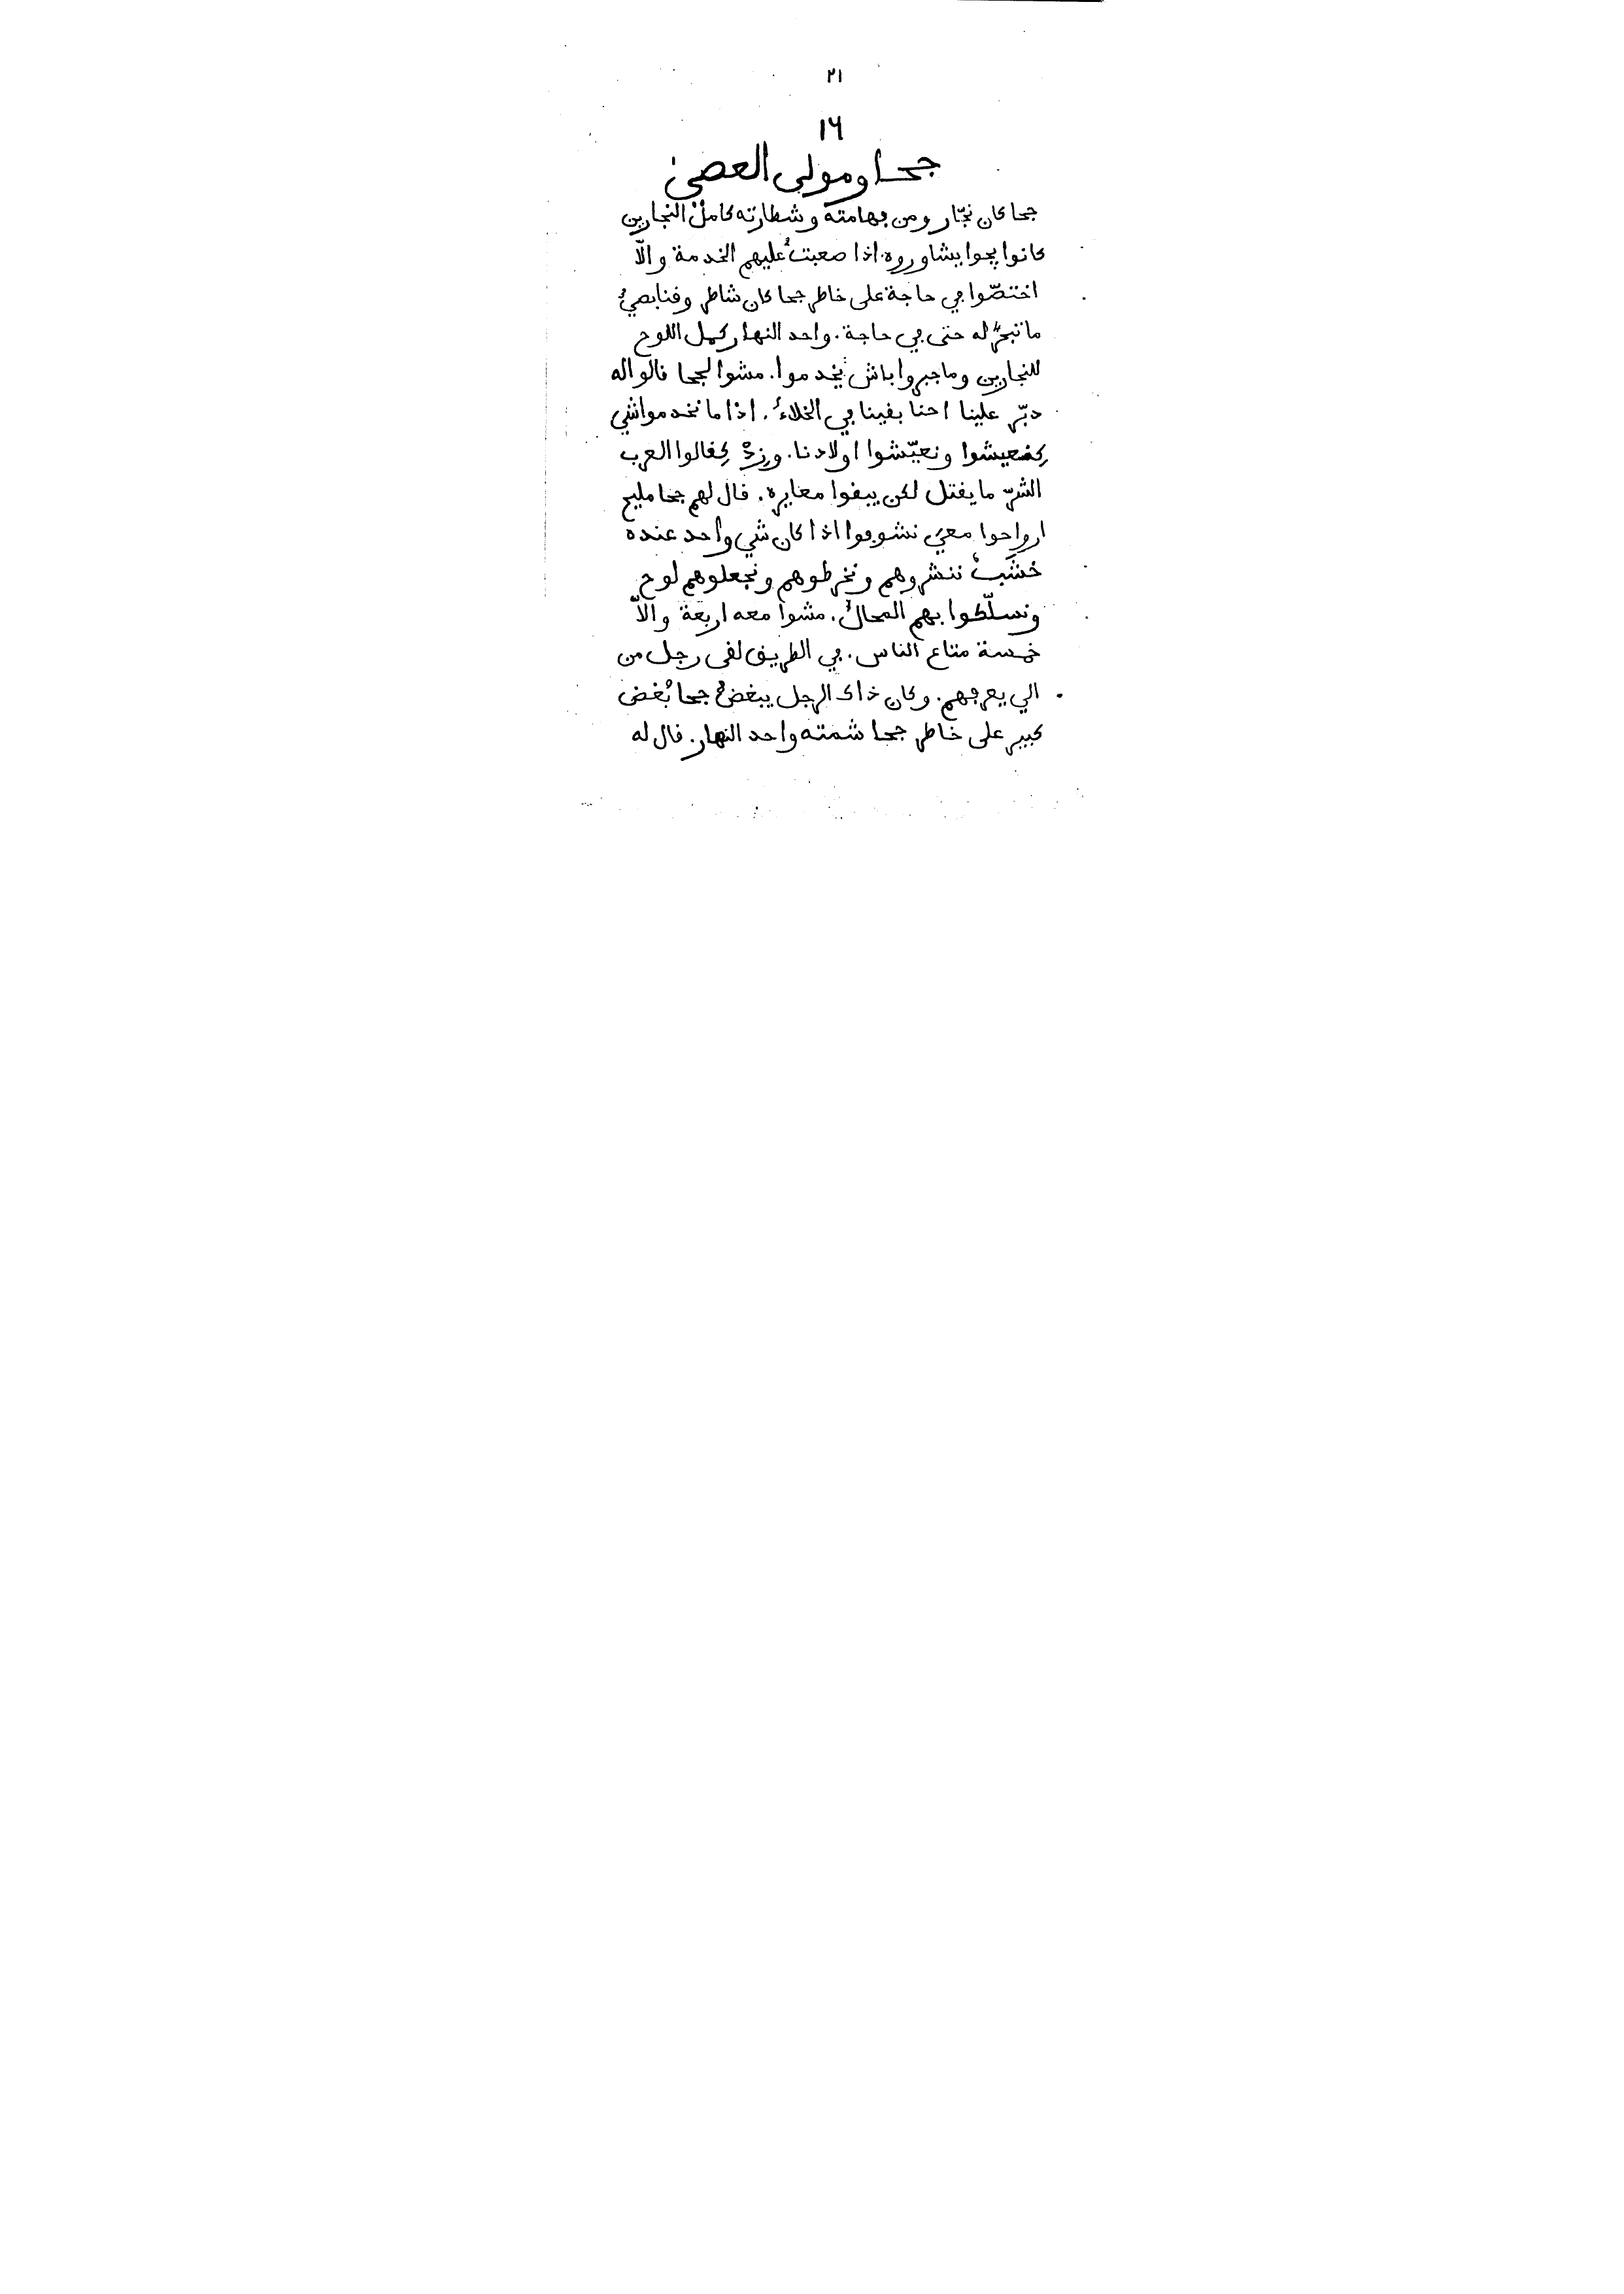 ٢١
١٦
جحا ومولى الغصن
جحا كان نجّار ومن ڢهامته وشطارته كامل النجارين
كانوا يجوا يشاوروه. اذا صعبت عليهم الخدمة والّا
اختصّوا ڢي حاجة على خاطر جحا كان شاطر وڧنابصي
له حتى ڢي حاجة. واحد النهار كمل اللوح
للنجارين وما جبروا باش يخدموا. مشوا لجحا ڧالوا له
دبّر علينا احنا بڧينا ڢي الخلاء. اذا ما نخدموا شي
كڢنعيشوا ونعيّشوا اولادنا. وزد كڢڧالوا العرب
الشرّ ما يڧتل لكن يبڧوا معايره. ڧال لهم جحا مليح
ارواحوا معي نشوڢوا اذا كان شي واحد عنده
خشب ننشروهم ونخرطوهم ونجعلوهم لوح
ونسلّكوا بهم المحال. مشوا معه اربعة والّا
خمسة متاع الناس. ڢي الطريڧ لڧى رجل من
الي يعرڢهم. وكان ذاك الرجل يبغض جحا بُغض
كبير على خاطر جحا شمته واحد النهار. ڧال له